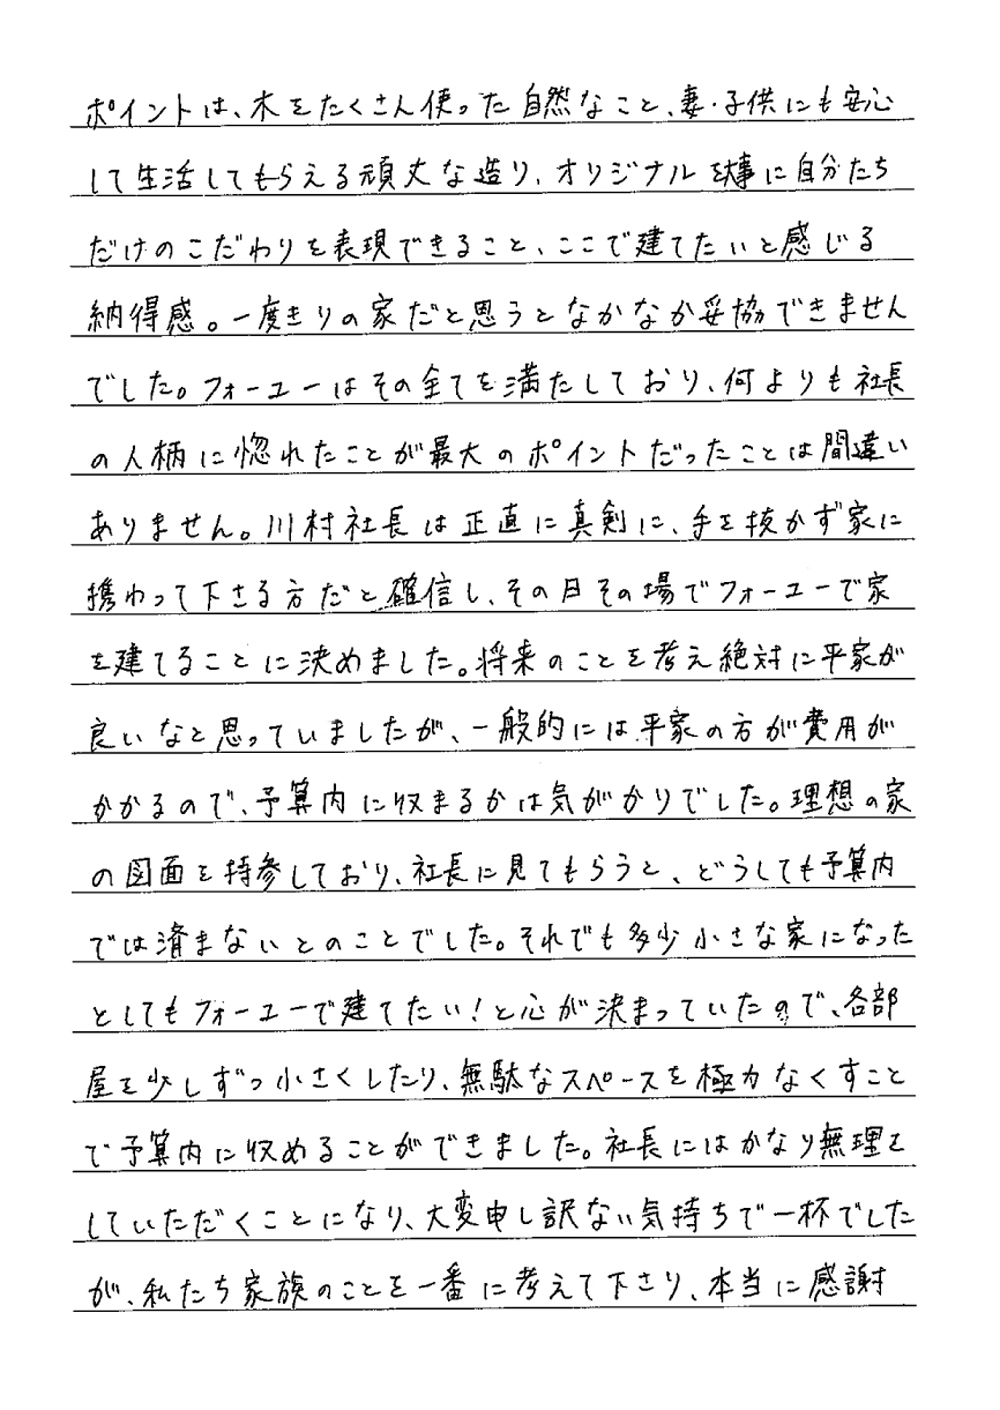 ポイントは、木をたくさん使った自然なこと、妻・子供にも安心
して生活してもらえる頑丈な造り、オリジナルを大事に自分たち
だけのこだわりを表現できること、ここで建てたいと感じる
納得感。一度きりの家だと思うとなかなか妥協できません
でした。フォーユーはその全てを満たしており、何よりも社長
の人柄に惚れたことが最大のポイントだったことは間違い
ありません。川村社長は正直に真剣に、手を抜かず家に
携わって下さる方だと確信し、その日その場でフォーユーで家
を建てることに決めました。将来のことを考え絶対に平家が
良いなと思っていましたが、一般的には平家の方が費用が
かかるので、予算内に収まるかは気がかりでした。理想の家
の図面を持参しており、社長に見てもらうと、どうしても予算内
では済まないとのことでした。それでも多少小さな家になった
としてもフォーユーで建てたい！と心が決まっていたので、各部
屋を少しずつ小さくしたり、無駄なスペースを極力なくすこと
で予算内に収めることができました。社長にはかなり無理を
していただくことになり、大変申し訳ない気持ちで一杯でした
が、私たち家族のことを一番に考えて下さり、本当に感謝